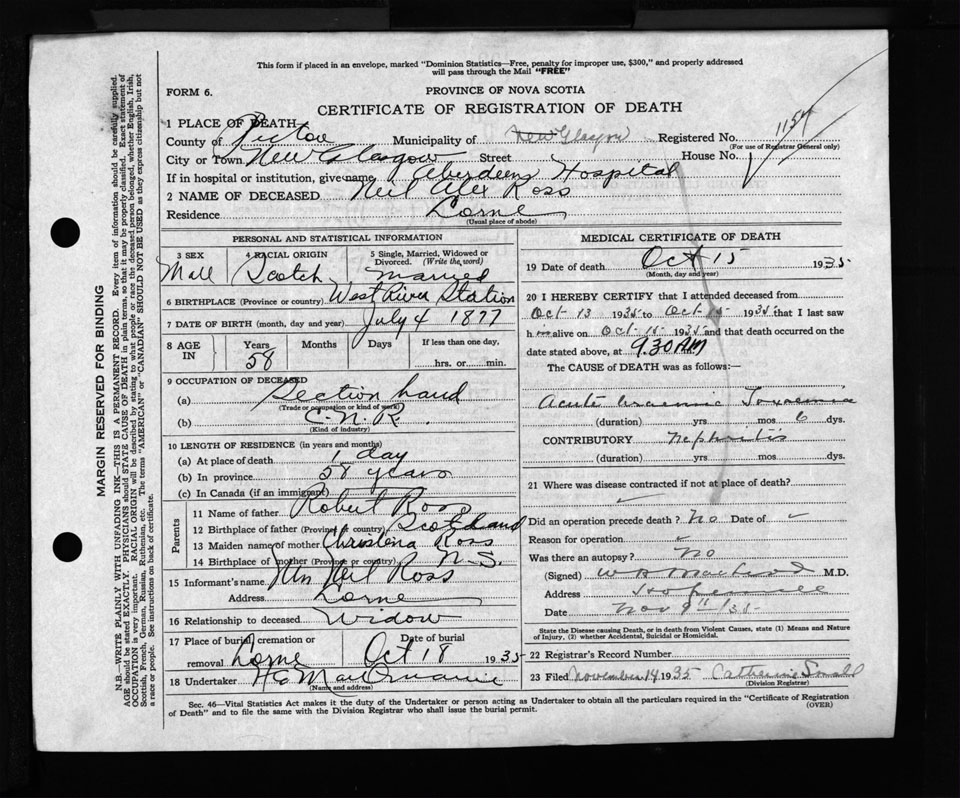 This form if placed in an envelope, marked "Dominion Statistics—Free, penalty for improper use, $300," and properly addressed
will pass through the Mail "FREE"
FORM 6.
PROVINCE OF NOVA SCOTIA
CERTIFICATE OF REGISTRATION OF DEATH
1 PLACE OF DEATH
County of Pictou Municipality of New Glasgow Registered No. 1157
(For use of Registrar General only)
City or Town New Glasgow Street House No.
If in hospital or institution, give name Aberdeen Hospital
2 NAME OF DECEASED Neil Alex Ross
Residence Lorne
(Usual place of abode)
PERSONAL AND STATISTICAL INFORMATION
3 SEX 4 RACIAL ORIGIN 5 Single, Married, Widowed or
Divorced. (Write the word)
Male Scotch Married
6 BIRTHPLACE (Province or country) West River Station
7 DATE OF BIRTH (month, day and year) July 4 1877
8 AGE IN Years Months Days If less than one day,
58 hrs. or min.
9 OCCUPATION OF DECEASED
(a) Section hand
(Trade or occupation or kind of work)
(b) C.N.R.
(Kind of industry)
10 LENGTH OF RESIDENCE (in years and months)
(a) At place of death 1 day
(b) In province 58 years
(c) In Canada (if an immigrant)
Parents
11 Name of father Robert Ross
12 Birthplace of father (Province or country) Scotland
13 Maiden name of mother Christena Ross
14 Birthplace of mother (Province or country) N.S.
15 Informant's name Mrs Neil Ross
Address Lorne
16 Relationship to deceased Widow
17 Place of burial, cremation or Date of burial
removal Lorne Oct 18 1935
18 Undertaker
(Name and address)
MEDICAL CERTIFICATE OF DEATH
19 Date of death Oct 15 1935
(Month, day and year)
20 I HEREBY CERTIFY that I attended deceased from
Oct 13 1935 to Oct 15 1935 that I last saw
him alive on Oct 15 1935 and that death occurred on the
date stated above, at 9.30 AM
The CAUSE of DEATH was as follows:—
Acute uraemic Toxaemia
(duration) yrs mos 6 dys.
CONTRIBUTORY Nephritis
(duration) yrs mos dys.
21 Where was disease contracted if not at place of death?
Did an operation precede death? No Date of
Reason for operation
Was there an autopsy? No
(Signed) M.D.
Address Hopewell
Date Nov 9th /35
State the Disease causing Death, or in death from Violent Causes, state (1) Means and Nature
of Injury, (2) whether Accidental, Suicidal or Homicidal.
22 Registrar's Record Number
23 Filed November 14 1935 Catherine
(Division Registrar)
Sec. 46—Vital Statistics Act makes it the duty of the Undertaker or person acting as Undertaker to obtain all the particulars required in the "Certificate of Registration
of Death" and to file the same with the Division Registrar who shall issue the burial permit.
(OVER)
MARGIN RESERVED FOR BINDING
N.B.—WRITE PLAINLY WITH UNFADING INK—THIS IS A PERMANENT RECORD. Every item of information should be carefully supplied.
AGE should be stated EXACTLY. PHYSICIANS should STATE CAUSE OF DEATH in plain terms, so that it may be properly classified. Exact statement of
OCCUPATION is very important. RACIAL ORIGIN will be described by stating to what people or race the deceased person belonged, whether English, Irish,
Scottish, French, German, Russian, Ruthenian, etc. The terms "AMERICAN" or "CANADIAN" SHOULD NOT BE USED as they express citizenship but not
a race or people. See instructions on back of certificate.